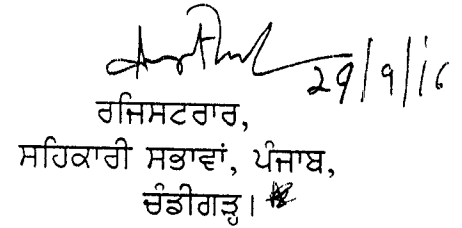 29/9/16
ਰਜਿਸਟਰਾਰ,
ਸਹਿਕਾਰੀ ਸਭਾਵਾਂ, ਪੰਜਾਬ,
ਚੰਡੀਗੜ੍ਹ।